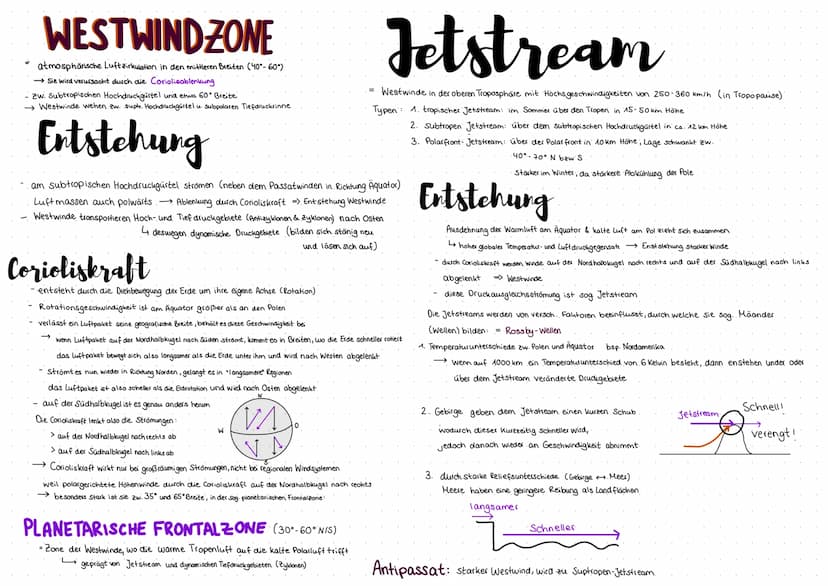 WESTWINDZONE
* atmosphärische Luftzirkulation in den mittleren Breiten (40°-60°)
→ Sie wird verursacht durch die Coriolisablenkung
- zw. Subtropischen Hochdruckgürtel und etwa 60° Breite
→ Westwinde wehen zw. suptr. Hochdruckgürtel u subpolaren Tiefdruckrinne
Entstehung
- am subtropischen Hochdruckgürtel strömen (neben dem Passatwinden in Richtung Äquator)
Luftmassen auch polwärts → Ablenkung durch Corioliskraft ⇒ Entstehung Westwinde
- Westwinde transportieren Hoch- und Tiefdruckgebiete (Antizyklonen & Zyklonen) nach Osten
↳ deswegen dynamische Druckgebiete (bilden sich stänig neu
und lösen sich auf)
Corioliskraft
- entsteht durch die Drehbewegung der Erde um ihre eigene Achse (Rotation)
- Rotationsgeschwindigkeit ist am Äquator größer als an den Polen
- verlässt ein Luftpaket seine geografische Breite, behält es diese Geschwindigkeit bei
→ wenn Luftpaket auf der Nordhalbkugel nach Süden strömt, kommt es in Breiten, wo die Erde schneller rotiert
das Luftpaket bewegt sich also langsamer als die Erde unter ihm und wird nach Westen abgelenkt
- Strömt es nun wieder in Richtung Norden, gelangt es in "langsamere" Regionen
das Luftpaket ist also scheller als die Erdrotation und wird nach Osten abgelenkt
- auf der Südhalbkugel ist es genau anders herum
Die Corioliskraft lenkt also die Strömungen:
> auf der Nordhalbkugel nach rechts ab
> auf der Südhalbkugel nach links ab
N
W
O
S
→ Corioliskraft wirkt nur bei großräumigen Strömungen, nicht bei regionalen Windsystemen
weil polargerichtete Höhenwinde durch die Corioliskraft auf der Nordhalbkugel nach rechts
→ besonders stark ist sie zw. 35° und 65° Breite, in der sog. planetarischen Frontalzone:
PLANETARISCHE FRONTALZONE (30°-60° N/S)
* Zone der Westwinde, wo die warme Tropenluft auf die kalte Polarluft trifft
↳ geprägt von Jetstream und dynamischen Tiefdruckgebieten (Zyklonen)
Jetstream
= Westwinde in der oberen Troposphäre mit Höchsgeschwindigkeiten von 250-360 km/h (in Tropopause)
Typen: 1. tropischer Jetstream: im Sommer über den Tropen in 15-50km Höhe
2. Subtropen Jetstream: über dem subtropischen Hochdruckgürtel in ca. 12km Höhe
3. Polarfront-Jetstream: über der Polarfront in 10km Höhe, Lage schwankt zw.
40°-70° N bzw S
Stärker im Winter, da stärkere Abkühlung der Pole
Entstehung
Ausdehnung der Warmluft am Äquator & kalte Luft am Pol zieht sich zusammen
↳ hoher globaler Temperatur- und Luftdruckgegensatz → Enstehung starker Winde
- durch Corioliskraft werden Winde auf der Nordhalbkugel nach rechts und auf der Südhalbkugel nach links
abgelenkt ⇒ Westwinde
- diese Druckausgleichsströmung ist sog Jetstream
Die Jetstreams werden von versch. Faktoren beeinflusst, durch welche sie sog. Mäander
(Wellen) bilden: = Rossby-Wellen
1. Temperaturunterschiede zw. Polen und Äquator bsp. Nordamerika
→ wenn auf 1000km ein Temperaturunterschied von 6 Kelvin besteht, dann enstehen unter oder
über dem Jetstream veränderte Druckgebiete
2. Gebirge geben dem Jetstream einen kurzen Schub
wodurch dieser kurzzeitig schneller wird,
jedoch danach wieder an Geschwindigkeit abnimmt
Jetstream
Schnell!
verengt!
3. durch starke Reliefsunterschiede (Gebirge ↔ Meer)
Meere haben eine geringere Reibung als Landflächen
langsamer
Schneller
Antipassat: starker Westwind, wird zu Suptropen-Jetstream